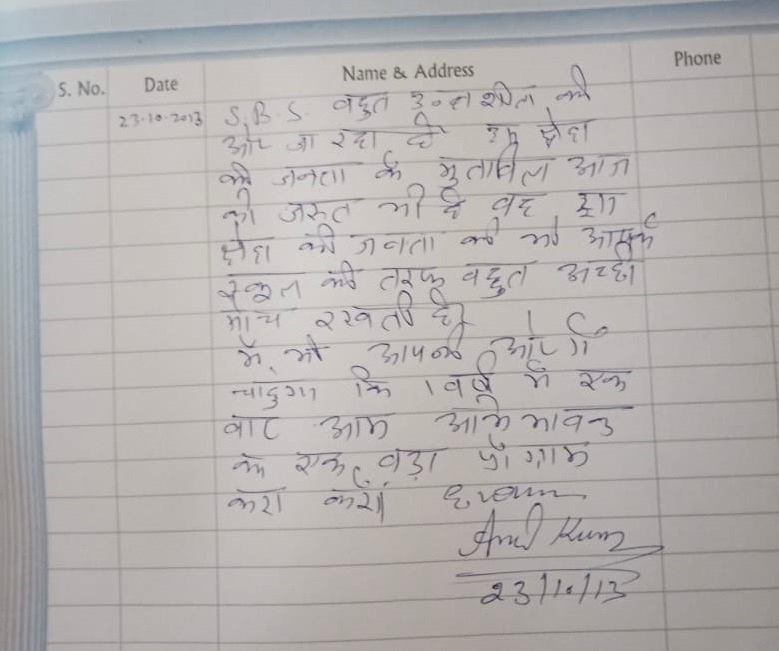 S. No. Date Name & Address Phone
23.10.2013 S.B.S. बहुत उन्नतशील की
ओर जा रहा है इस क्षेत्र
की जनता के मुताबिल आज
की जरुत भी है वह इस
क्षेत्र की जनता की भी आपके
स्कूल की तरफ बहुत अच्छी
सोच रखती है।
मैं भी आपकी ओर से
चाहुगा कि 1 वर्ष में एक
बार आम आभिभावक
के एक बड़ा प्रोग्राम
करा करें
Anil Kumar
23/10/13